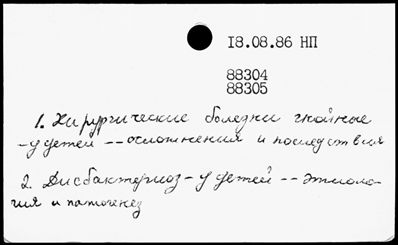 18.08.86 НП
88304
88305
1. Хирургические болезни гнойные
- у детей -- осложнения и последствия
2. Дисбактериоз - у детей -- этиоло-
гия и патогенез